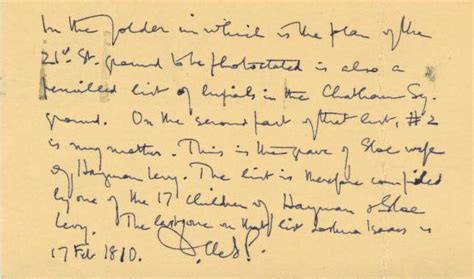 In the folder in which is the plan of the
21st St. ground to be photostated is also a
pencilled list of burials in the Chatham Sq.
ground. On the second part of that list, #2
is my mother. This is the grave of Sloe wife
of Hayman Levy. The list is therefore compiled
by one of the 17 children of Hayman & Sloe
Levy. The last one on that list Joshua Isaacs is
17 Feb 1810.